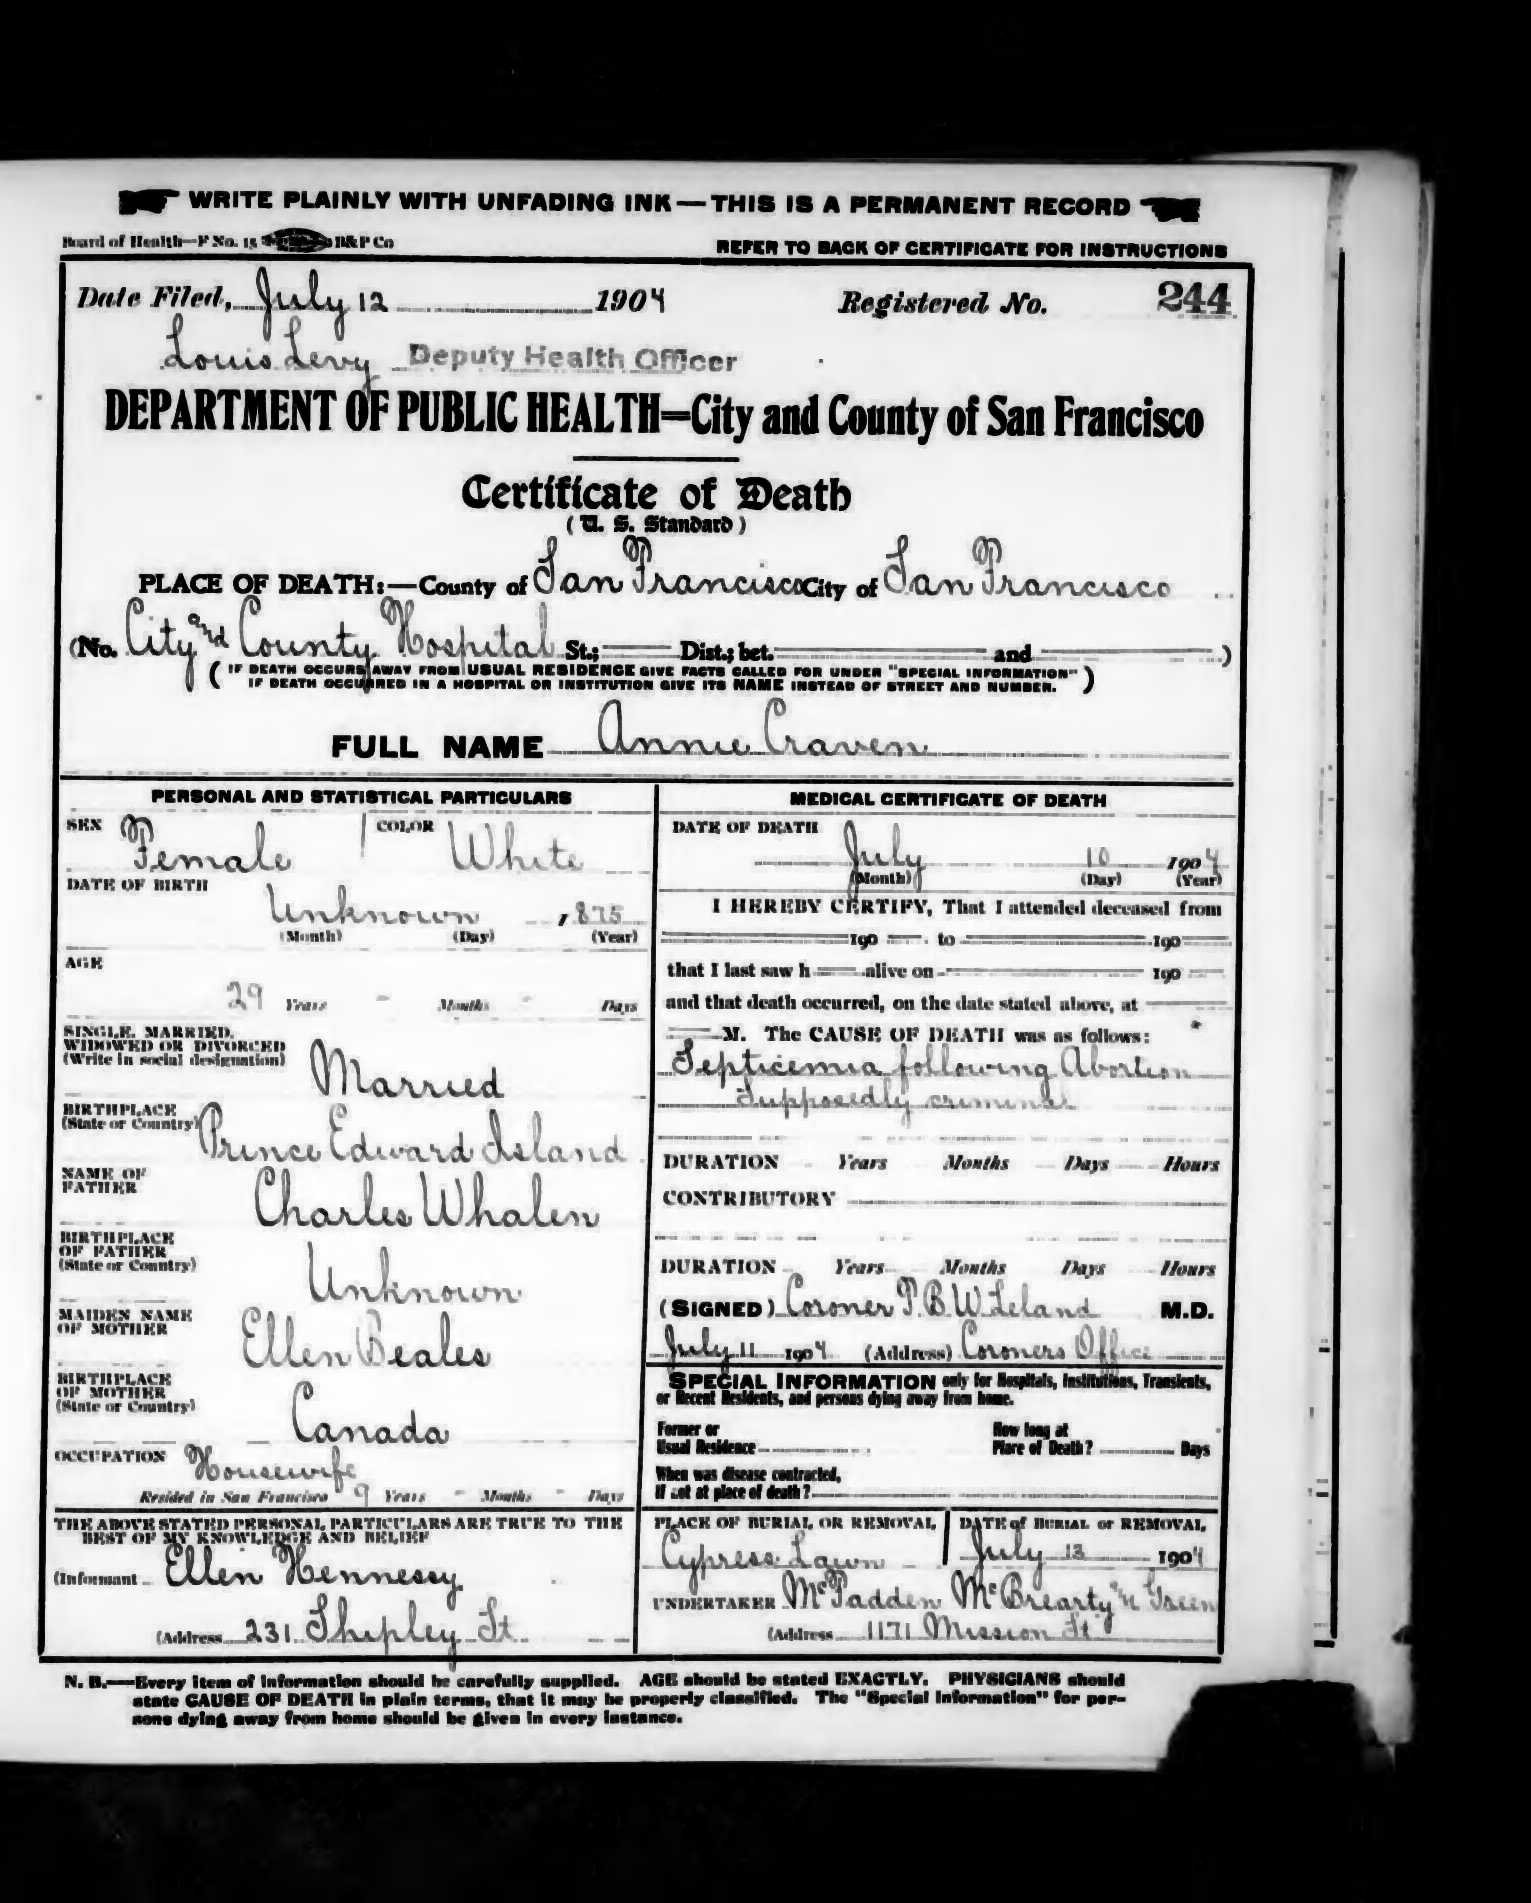 WRITE PLAINLY WITH UNFADING INK—THIS IS A PERMANENT RECORD
Board of Health—F No. 15 B&P Co
REFER TO BACK OF CERTIFICATE FOR INSTRUCTIONS
Date Filed, July 12 1904 Registered No. 244
Louis Levy Deputy Health Officer
DEPARTMENT OF PUBLIC HEALTH—City and County of San Francisco
Certificate of Death
(U. S. Standard)
PLACE OF DEATH:—County of San Francisco City of San Francisco
(No. City and County Hospital St.; Dist.; bet. and )
(IF DEATH OCCURS AWAY FROM USUAL RESIDENCE GIVE FACTS CALLED FOR UNDER "SPECIAL INFORMATION"
IF DEATH OCCURRED IN A HOSPITAL OR INSTITUTION GIVE ITS NAME INSTEAD OF STREET AND NUMBER.)
FULL NAME Annie Craven
PERSONAL AND STATISTICAL PARTICULARS
SEX Female COLOR White
DATE OF BIRTH
Unknown , 875
(Month) (Day) (Year)
AGE
29 Years - Months - Days
SINGLE, MARRIED,
WIDOWED OR DIVORCED
(Write in social designation)
Married
BIRTHPLACE
(State or Country)
Prince Edward Island
NAME OF
FATHER
Charles Whalen
BIRTHPLACE
OF FATHER
(State or Country)
Unknown
MAIDEN NAME
OF MOTHER
Ellen Beales
BIRTHPLACE
OF MOTHER
(State or Country)
Canada
OCCUPATION Housewife
Resided in San Francisco 9 Years - Months - Days
THE ABOVE STATED PERSONAL PARTICULARS ARE TRUE TO THE
BEST OF MY KNOWLEDGE AND BELIEF
(Informant Ellen Hennessy
(Address 231 Shipley St
MEDICAL CERTIFICATE OF DEATH
DATE OF DEATH
July 10 1904
(Month) (Day) (Year)
I HEREBY CERTIFY, That I attended deceased from
190 to 190
that I last saw h alive on 190
and that death occurred, on the date stated above, at
M. The CAUSE OF DEATH was as follows:
Septicemia following Abortion
Supposedly criminal
DURATION Years Months Days Hours
CONTRIBUTORY
DURATION Years Months Days Hours
(SIGNED) Coroner T. B. W. Leland M.D.
July 11 1904 (Address) Coroners Office
SPECIAL INFORMATION only for Hospitals, Institutions, Transients,
or Recent Residents, and persons dying away from home.
Former or
Usual Residence
How long at
Place of Death? Days
When was disease contracted,
If not at place of death?
PLACE OF BURIAL OR REMOVAL
Cypress Lawn
DATE of BURIAL or REMOVAL
July 13 1904
UNDERTAKER McFadden McBrearty Green
(Address 1171 Mission St
N. B.—Every item of information should be carefully supplied. AGE should be stated EXACTLY. PHYSICIANS should
state CAUSE OF DEATH in plain terms, that it may be properly classified. The "Special Information" for per-
sons dying away from home should be given in every instance.